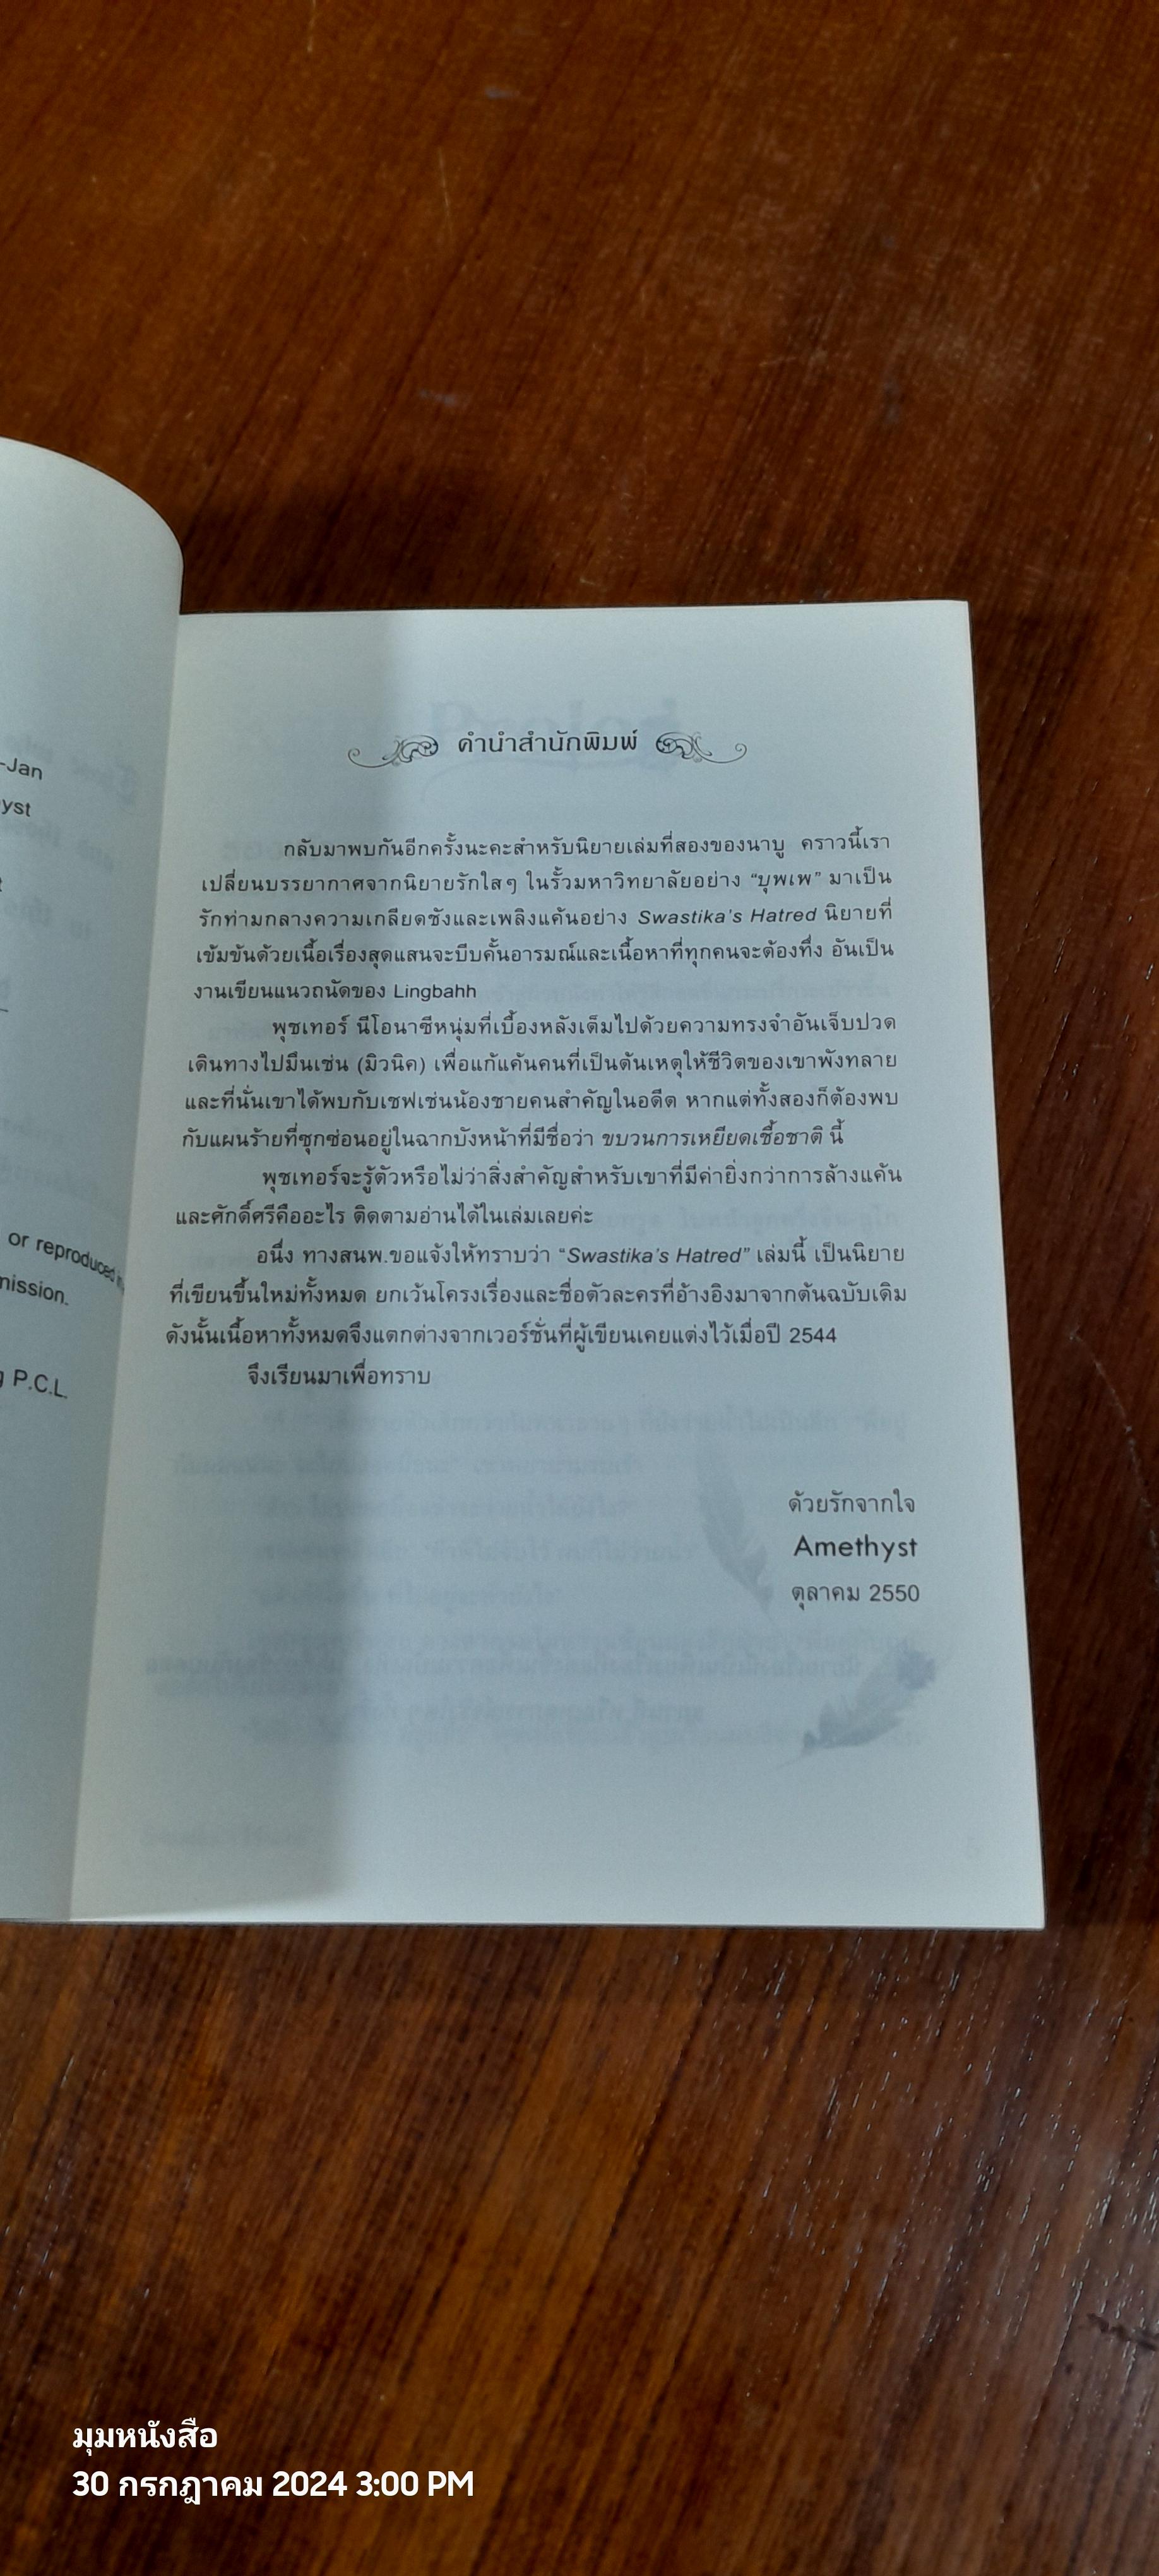 -Jan
yst
t
or reproduced
mission.
g P.C.L.
คำนำสำนักพิมพ์
กลับมาพบกันอีกครั้งนะคะสำหรับนิยายเล่มที่สองของนาบู คราวนี้เรา
เปลี่ยนบรรยากาศจากนิยายรักใสๆ ในรั้วมหาวิทยาลัยอย่าง “บุพเพ” มาเป็น
รักท่ามกลางความเกลียดชังและเพลิงแค้นอย่าง Swastika's Hatred นิยายที่
เข้มข้นด้วยเนื้อเรื่องสุดแสนจะบีบคั้นอารมณ์และเนื้อหาที่ทุกคนจะต้องทึ่ง อันเป็น
งานเขียนแนวถนัดของ Lingbahh
พุชเทอร์ นีโอนาซีหนุ่มที่เบื้องหลังเต็มไปด้วยความทรงจำอันเจ็บปวด
เดินทางไปมึนเช่น (มิวนิค) เพื่อแก้แค้นคนที่เป็นต้นเหตุให้ชีวิตของเขาพังทลาย
และที่นั่นเขาได้พบกับเซฟเช่นน้องชายคนสำคัญในอดีต หากแต่ทั้งสองก็ต้องพบ
กับแผนร้ายที่ซุกซ่อนอยู่ในฉากบังหน้าที่มีชื่อว่า ขบวนการเหยียดเชื้อชาติ นี้
พุชเทอร์จะรู้ตัวหรือไม่ว่าสิ่งสำคัญสำหรับเขาที่มีค่ายิ่งกว่าการล้างแค้น
และศักดิ์ศรีคืออะไร ติดตามอ่านได้ในเล่มเลยค่ะ
อนึ่ง ทางสนพ.ขอแจ้งให้ทราบว่า “Swastika's Hatred” เล่มนี้ เป็นนิยาย
ที่เขียนขึ้นใหม่ทั้งหมด ยกเว้นโครงเรื่องและชื่อตัวละครที่อ้างอิงมาจากต้นฉบับเดิม
ดังนั้นเนื้อหาทั้งหมดจึงแตกต่างจากเวอร์ชั่นที่ผู้เขียนเคยแต่งไว้เมื่อปี 2544
จึงเรียนมาเพื่อทราบ
ด้วยรักจากใจ
Amethyst
ตุลาคม 2550
มุมหนังสือ
30 กรกฎาคม 2024 3:00 PM